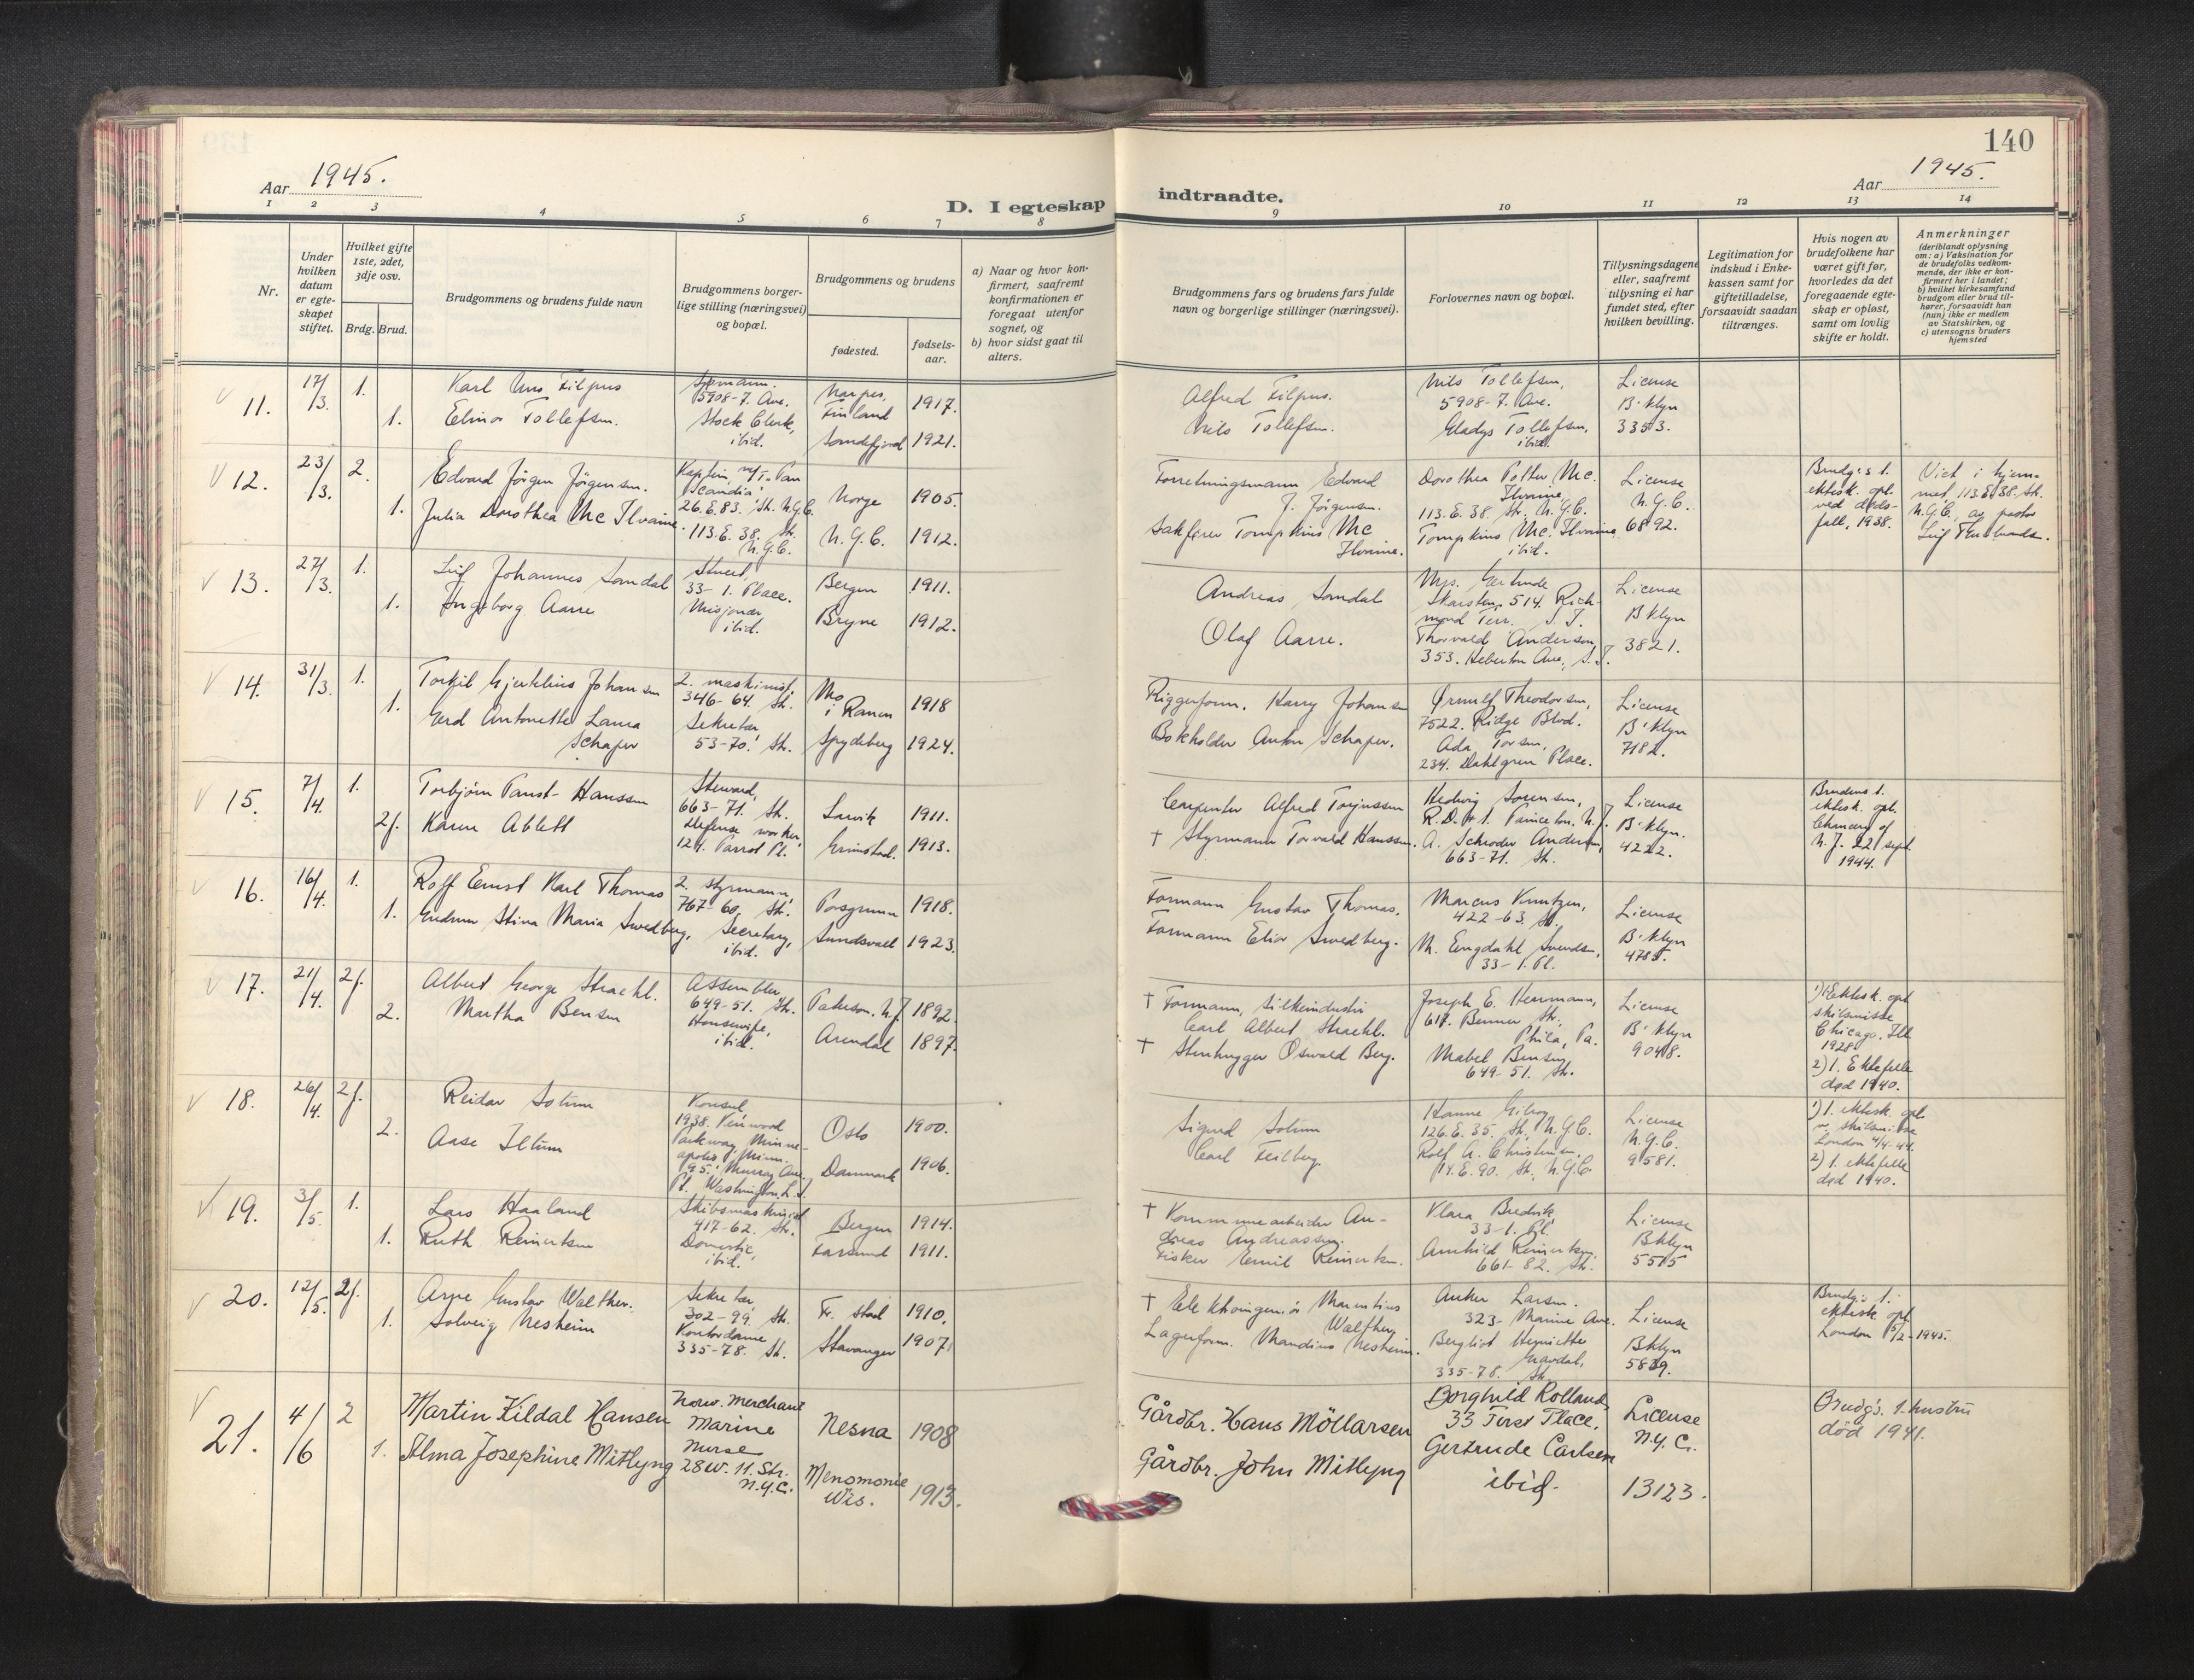 140
Aar 1945.
D. I egteskap indtraadte.
Aar 1945.
1 2 3 4 5 6 7 8 9 10 11 12 13 14
Nr.
Under hvilken datum er egteskapet stiftet.
Hvilket gifte 1ste, 2det, 3dje osv.
Brdg. Brud.
Brudgommens og brudens fulde navn
Brudgommens borgerlige stilling (næringsvei) og bopæl.
Brudgommens og brudens
fødested.
fødselsaar.
a) Naar og hvor konfirmert, saafremt konfirmationen er foregaat utenfor sognet, og
b) hvor sidst gaat til alters.
Brudgommens fars og brudens fars fulde navn og borgerlige stillinger (næringsvei).
Forlovernes navn og bopæl.
Tillysningsdagene eller, saafremt tillysning ei har fundet sted, efter hvilken bevilling.
Legitimation for indskud i Enkekassen samt for giftetilladelse, forsaavidt saadan tiltrænges.
Hvis nogen av brudefolkene har været gift før, hvorledes da det foregaaende egteskap er opløst, samt om lovlig skifte er holdt.
Anmerkninger
(deriblandt oplysning om: a) Vaksination for de brudefolks vedkommende, der ikke er konfirmert her i landet; b) hvilket kirkesamfund brudgom eller brud tilhører, forsaavidt han (hun) ikke er medlem av Statskirken, og c) utensogns bruders hjemsted
11. 17/3. 1. Karl Filpus
Sjømann. 5908-7. Ave.
Finland 1917.
Alfred Filpus.
Nils Tollefsen, 5908-7. Ave.
License B'klyn 3353.
1. Elinor Tollefsen.
Stock Clerk, ibid.
Sandefjord 1921.
Nils Tollefsen.
Gladys Tollefsen, ibid.
12. 23/3. 2. Edvard Jørgen Jørgensen.
Kaptein, M/T. "Pan Scandia" 26. E. 83. Str. N.Y.C.
Norge 1905.
Forretningsmann Edvard J. Jørgensen.
Dorothea Potter Mc. Ilvaine, 113. E. 38. Str. N.Y.C.
License N.Y.C. 6892.
Brudg's 1. ektesk. opl. ved dødsfall, 1938.
Viet i hjemmet, 113. E. 38. Str. N.Y.C., av pastor
1. Julia Dorothea Mc Ilvaine.
113. E. 38. Str. N.Y.C.
N.Y.C. 1912.
Sakfører Tompkins Mc Ilvaine.
Tompkins Mc. Ilvaine ibid.
13. 27/3. 1. Leif Johannes Sandal
33-1. Place.
Bergen 1911.
Andreas Sandal
Mrs. Gertrude Karsten, 514. Richmond Terr. S.I.
License B'klyn 3821.
1. Ingeborg Aarre
Misjonær ibid.
Bryne 1912.
Olaf Aarre.
Thorvald Andersen, 353. Heberton Ave., S.I.
14. 31/3. 1. Torkil Johansen
2. maskinist, 346-64. Str.
Mo i Ranen 1918
Riggerform. Harry Johansen
Ørnulf Theodorsen, 7522. Ridge Blvd.
License B'klyn 7182.
1. Gerd Antonette Laura Schaper
Sekretær, 53-70. Str.
Spydeberg 1924.
Bokholder Anton Schaper.
Ada Torsen, 234. Dahlgren Place.
15. 7/4. 1. Torbjørn Faust-Hanssen
Steward, 663-71. Str.
Larvik 1911.
Carpenter Alfred Torjussen
Hedvig Sørensen, R.D. # 1. Princeton, N.J.
License B'klyn. 4222.
Brudens 1. ektesk. opl. Chancery of N.J. 22 sept. 1944.
2f. Karen Ablett
Defense worker 124. Parrot Pl.
Grimstad. 1913.
† Styrmann Torvald Hanssen.
A. Schrøder Andersen, 663-71. Str.
16. 16/4. 1. Rolf Ernst Karl Thomas
2. styrmann, 767-60. Str.
Porsgrunn 1918.
Formann Gustav Thomas.
Marcus Knutzen, 422-63. St.
License B'klyn 4785.
1. Gudrun Stina Maria Swedberg,
Secretary, ibid.
Sundsvall 1923.
Formann Elis Swedberg.
M. Engdahl Svendsen, 33-1. Pl.
17. 21/4. 2f. Albert George Straehl.
Assembler 649-51. Str.
Paterson, N.J. 1892.
† Formann, silkeindustri Carl Albert Straehl.
Joseph E. Herrmann, 617. Benner Str., Phila, Pa.
License B'klyn 9048.
1) 1. Ektesk. opl skilsmisse Chicago, Ill. 1928.
2) 1. Ektefelle død 1940.
2. Martha Bensen
Housewife, ibid.
Arendal 1897.
† Stenhugger Oswald Berg.
Mabel Bensen, 649-51. Str.
18. 26/4. 2f. Reidar Solum
Konsul 1938. Kenwood Parkway, Minneapolis, Minn.
Oslo 1900.
Sigurd Solum
126. E. 35. St. N.Y.C.
License N.Y.C. 9581.
1) 1. ektesk. opl. v. skilsmisse London 4/4-44.
2) 1. ektefelle død 1940.
2. Aase Iltum
95. Murray Ave., Pt. Washington, L.I.
Danmark 1906.
Carl Feilberg.
Rolf A. Christensen, 14. E. 90. St., N.Y.C.
19. 3/5. 1. Lars Haaland
Skibsmaskinist 417-62. Str.
Bergen 1914.
† Kommunearbeider Andreas Andreassen.
Klara Bredvik, 33-1. Pl.
License Bklyn 5515
1. Ruth Reinertsen
Domestic, ibid.
Farsund 1911.
Fisker Emil Reinertsen.
Arnhild Reinertsen, 661-82. Str.
20. 12/5. 2f. Arne Gustav Walther.
Sekretær, 302-99. Str.
Fr. stad 1910.
† Elektroingeniør Mauritius Walther,
Anker Larsen. 323- Marine Ave.
License Bklyn 5839.
Brudg's 1. ektesk. opl. London 5/2-1945.
1. Solveig Nesheim
Kontordame 335-78. St.
Stavanger 1907.
Lagerform. Mandius Nesheim.
Bergliot Henriette Gravdal, 335-78. Str.
21. 4/6 2 Martin Kildal Hansen
Norw. Merchant Marine
Nesna 1908
Gårdbr. Hans Möllarsen
Borghild Rolland, 33 First Place.
License N.Y.C. 13123.
Brudg's. 1. hustru död 1941.
1. Alma Josephine Mitlyng
Nurse 28 W. 11. Str. N.Y.C.
Menomonie Wis. 1913.
Gårdbr. John Mitlyng
Gertrude Carlsen ibid.